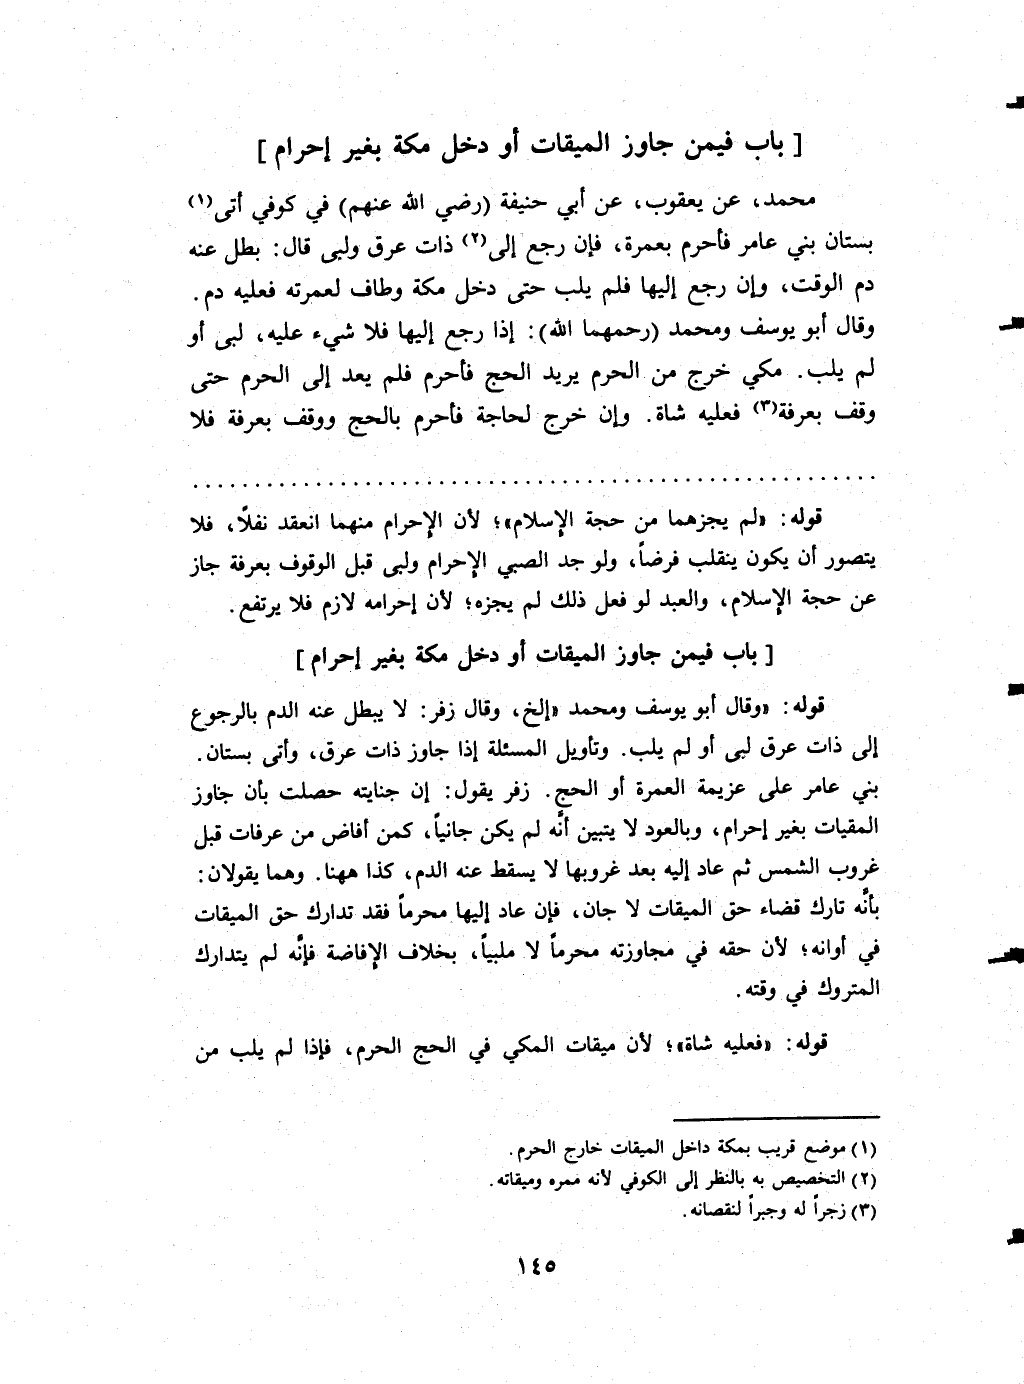 [ باب فيمن جاوز الميقات أو دخل مكة بغير إحرام ]
محمد، عن يعقوب، عن أبي حنيفة (رضي الله عنهم) في كوفي أتى(١)
بستان بني عامر فأحرم بعمرة، فإن رجع إلى(٢) ذات عرق ولبى قال: بطل عنه
دم الوقت، وإن رجع إليها فلم يلب حتى دخل مكة وطاف لعمرته فعليه دم.
وقال أبو يوسف ومحمد (رحمهما الله): إذا رجع إليها فلا شيء عليه، لبى أو
لم يلب. مكي خرج من الحرم يريد الحج فأحرم فلم يعد إلى الحرم حتى
وقف بعرفة(٣) فعليه شاة. وإن خرج لحاجة فأحرم بالحج ووقف بعرفة فلا
قوله: «لم يجزهما من حجة الإسلام»؛ لأن الإحرام منهما انعقد نفلًا، فلا
يتصور أن يكون ينقلب فرضاً، ولو جد الصبي الإحرام ولبى قبل الوقوف بعرفة جاز
عن حجة الإسلام، والعبد لو فعل ذلك لم يجزه؛ لأن إحرامه لازم فلا يرتفع.
[ باب فيمن جاوز الميقات أو دخل مكة بغير إحرام ]
قوله: «وقال أبو يوسف ومحمد «إلخ، وقال زفر: لا يبطل عنه الدم بالرجوع
إلى ذات عرق لبى أو لم يلب. وتأويل المسئلة إذا جاوز ذات عرق، وأتى بستان.
بني عامر على عزيمة العمرة أو الحج. زفر يقول: إن جنايته حصلت بأن جاوز
المقيات بغير إحرام، وبالعود لا يتبين أنَّه لم يكن جانياً، كمن أفاض من عرفات قبل
غروب الشمس ثم عاد إليه بعد غروبها لا يسقط عنه الدم، كذا ههنا. وهما يقولان:
بأنَّه تارك قضاء حق الميقات لا جان، فإن عاد إليها محرماً فقد تدارك حق الميقات
في أوانه؛ لأن حقه في مجاوزته محرماً لا ملبياً، بخلاف الإفاضة فإنَّه لم يتدارك
المتروك في وقته.
قوله: «فعليه شاة»؛ لأن ميقات المكي في الحج الحرم، فإذا لم يلب من
(١) موضع قريب بمكة داخل الميقات خارج الحرم.
(٢) التخصيص به بالنظر إلى الكوفي لأنه ممره وميقاته.
(٣) زجراً له وجبراً لنقصانه.
١٤٥